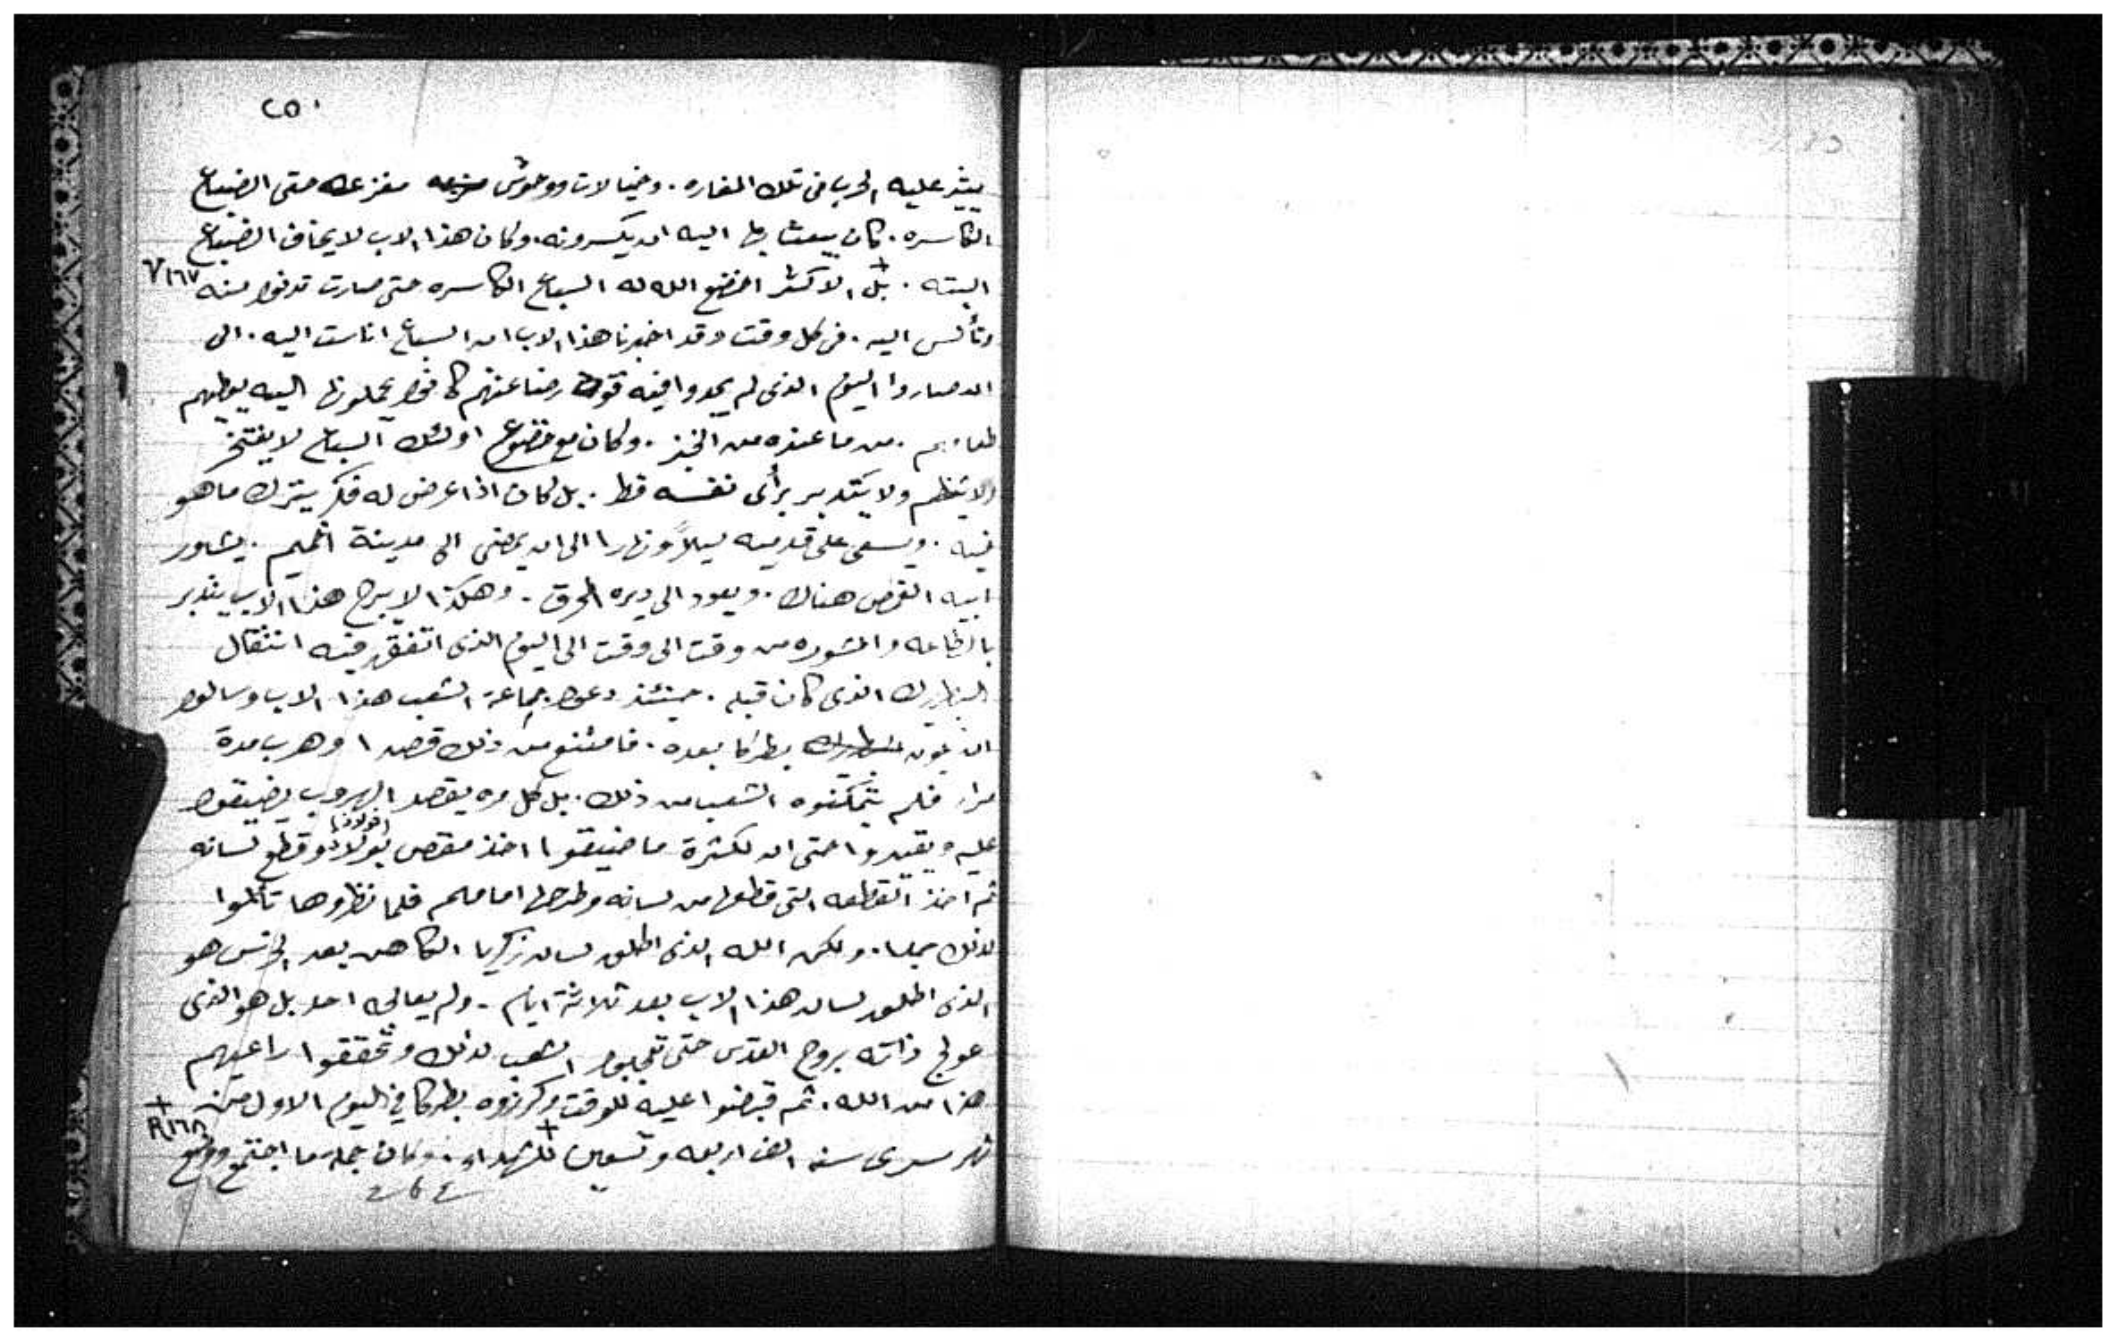 ٢٥٠
يثير عليه الحرب فى تلك المغاره . وخيالات ووحوش مفزعه حتى الضباع
الكاسره . كان يبعث بها اليه ان يكسرونه . وكان هذا الاب لا يخاف الضباع
البته . بل الاكثر اخضع الله له السباع الكاسره حتى صارت تدنوا منه V١٦٧
وتأنس اليه . فى كل وقت وقد اخبرنا هذا الاب ان السباع اناست اليه . الى
ان صاروا اليوم الذى لم يجدوا فيه قوت رضاعتهم كانوا يحملونها اليه يعطيهم
طعامهم . من ما عنده من الخبز . وكان مع خضوع اولئك السباع لا يفتخر
ولا يتعظم ولا يتدبر برأى نفسه قط . بل كان اذا عرض له فكر يترك ما هو
فيه . ويسعى على قدميه ليلاً ونهارا الى ان يمضى الى مدينة اخميم . يشاور
ابيه القمص هناك . ويعود الى ديره المحرق . وهكذا لا يبرح هذا الاب يتدبر
بالطاعه والمشوره من وقت الى وقت الى اليوم الذى اتفق فيه انتقال
البطريرك الذى كان قبله . حينئذ دعوا جماعة الشعب هذا الاب وسالوه
ان يكون بطركا بعده . فامتنع من ذلك قصدا وهرب مدة
مرار فلم يتمكنوه الشعب من ذلك . بل كل مره يقصد الهروب يضيقوا
عليه ويقيدوا حتى ان لكثرة ما ضيقوا اخذ مقص بولاد وقطع لسانه
ثم اخذ القطعه التى قطعها من لسانه وطرحها امامهم فلما نظروها تألموا
لذلك جدا . ولكن الله الذى اطلق لسان زكريا الكاهن بعد الخرس هو
الذى اطلق لسان هذا الاب بعد ثلاثة ايام . ولم يعالجه احد بل هو الذى
عولج ذاته بروح القدس حتى تعجبوا الشعب لذلك وتحققوا راعيهم
هذا من الله . ثم قبضوا عليه للوقت وكرزوه بطركا في اليوم الاول من
R١٦٨
شهر مسرى سنه الف اربعه وتسعين للشهداء . وكان جملة ما اجتمع ووضع